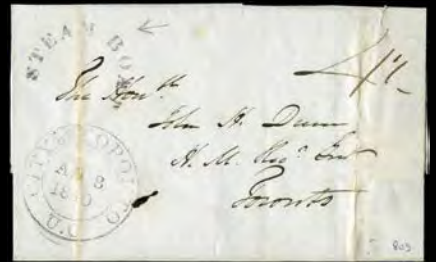 STEAM BOAT
4½
The Hon^ble
John H. Dunn
H. M. Rec^r Gen^l
Toronto
CITY OF TORONTO
1840
U.C.
809